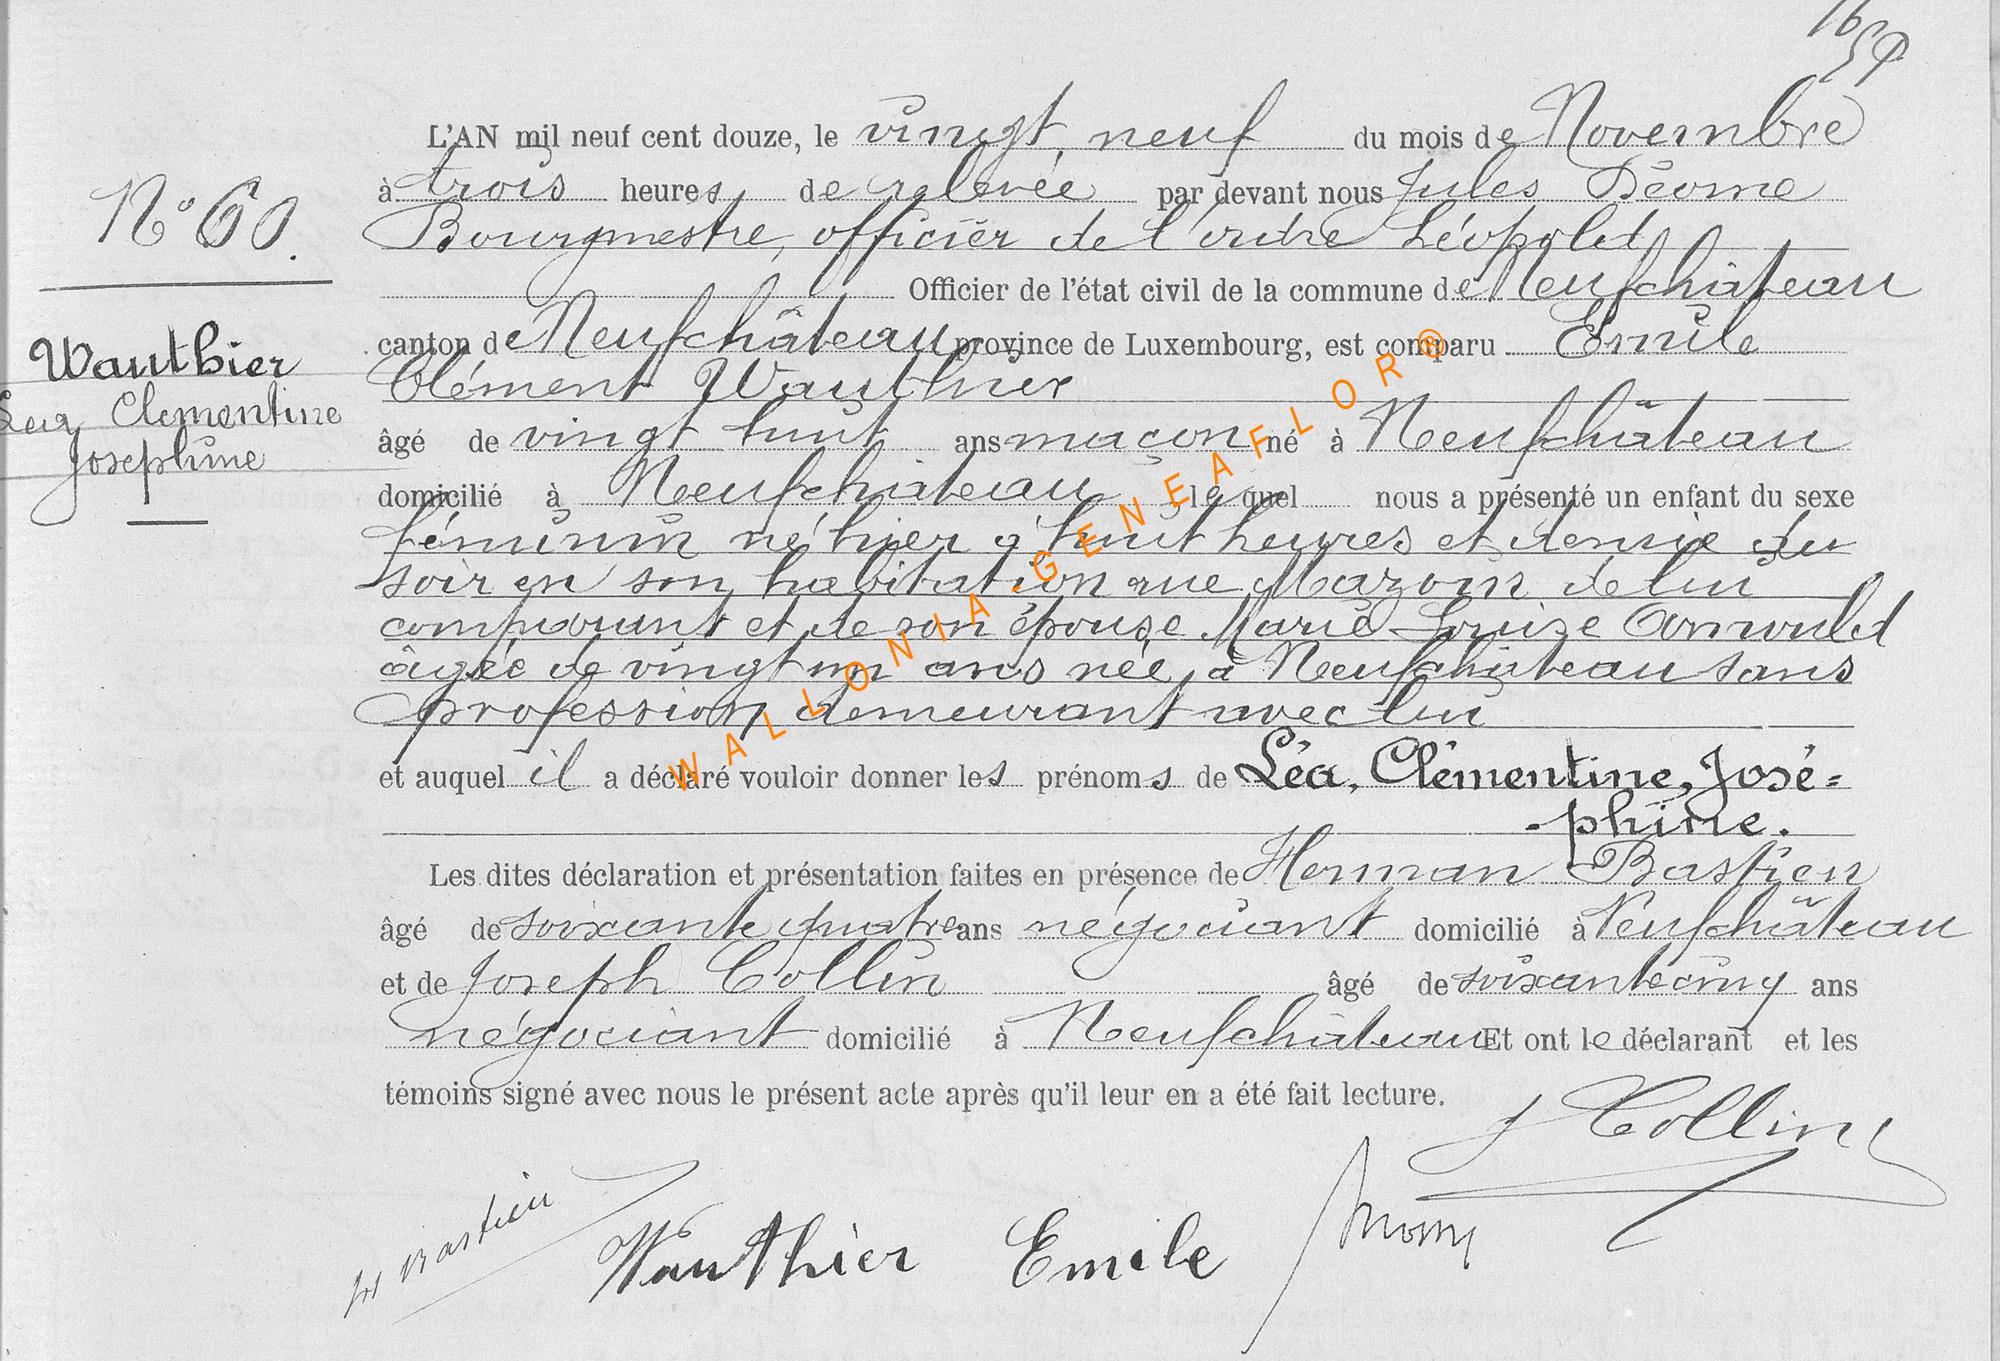 L'AN mil neuf cent douze, le vingt neuf du mois de Novembre
à trois heures de relevée par devant nous Jules
Bourgmestre, officier de l'ordre Léopold
N° 60.
Officier de l'état civil de la commune de Neufchâteau
canton de Neufchâteau province de Luxembourg, est comparu Emile
Wauthier
Clément Wauthier
Léa Clementine
âgé de vingt huit ans maçon né à Neufchâteau
Joséphine
domicilié à Neufchâteau, lequel nous a présenté un enfant du sexe
féminin né hier à huit heures et demie du
soir en son habitation rue Mazoin de lui
comparant et de son épouse Marie Louise Arnould
âgée de vingt un ans née à Neufchâteau sans
profession demeurant avec lui
et auquel il a déclaré vouloir donner les prénoms de Léa, Clémentine, José=
-phine.
Les dites déclaration et présentation faites en présence de Herman Bastien
âgé de soixante quatre ans négociant domicilié à Neufchâteau
et de Joseph Collin âgé de soixante cinq ans
négociant domicilié à Neufchâteau Et ont le déclarant et les
témoins signé avec nous le présent acte après qu'il leur en a été fait lecture.
J Collin
H Bastien
Wauthier Emile
WALLONIA GENEAFLOR®